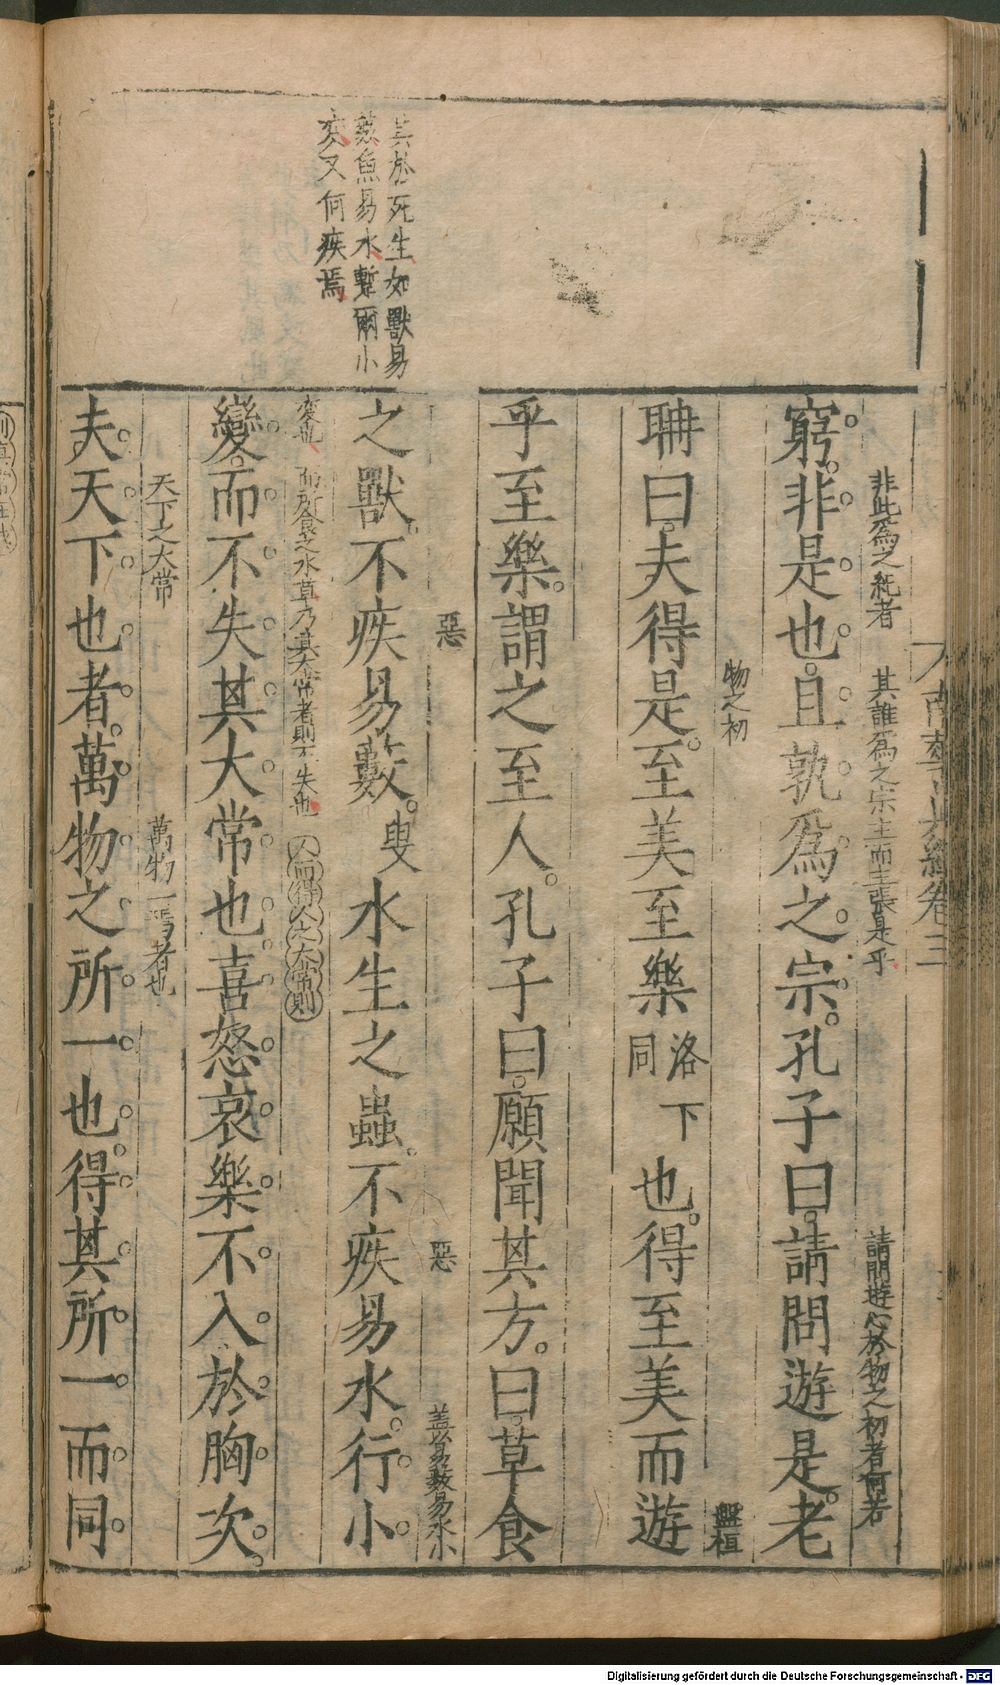 其於死生如獸易
藪魚易水暫爾小
変又何疾焉
南華真經卷三
非此為之紀者 其誰為之宗主而主張是乎 請問遊心於物之初者何若
窮非是也且孰為之宗孔子曰請問遊是老
物之初 盤桓
聃曰夫得是至美至樂洛同下也得至美而遊
乎至樂謂之至人孔子曰願聞其方曰草食
惡 惡 盖易藪易水小
之獸不疾易藪叟水生之蟲不疾易水行小
変也 而所食之水草乃其大常者則不失也 人而得人之大常則
變而不失其大常也喜怒哀樂不入於胸次
天下之大常 萬物一焉者也
夫天下也者萬物之所一也得其所一而同
Digitalisierung gefördert durch die Deutsche Forschungsgemeinschaft - DFG